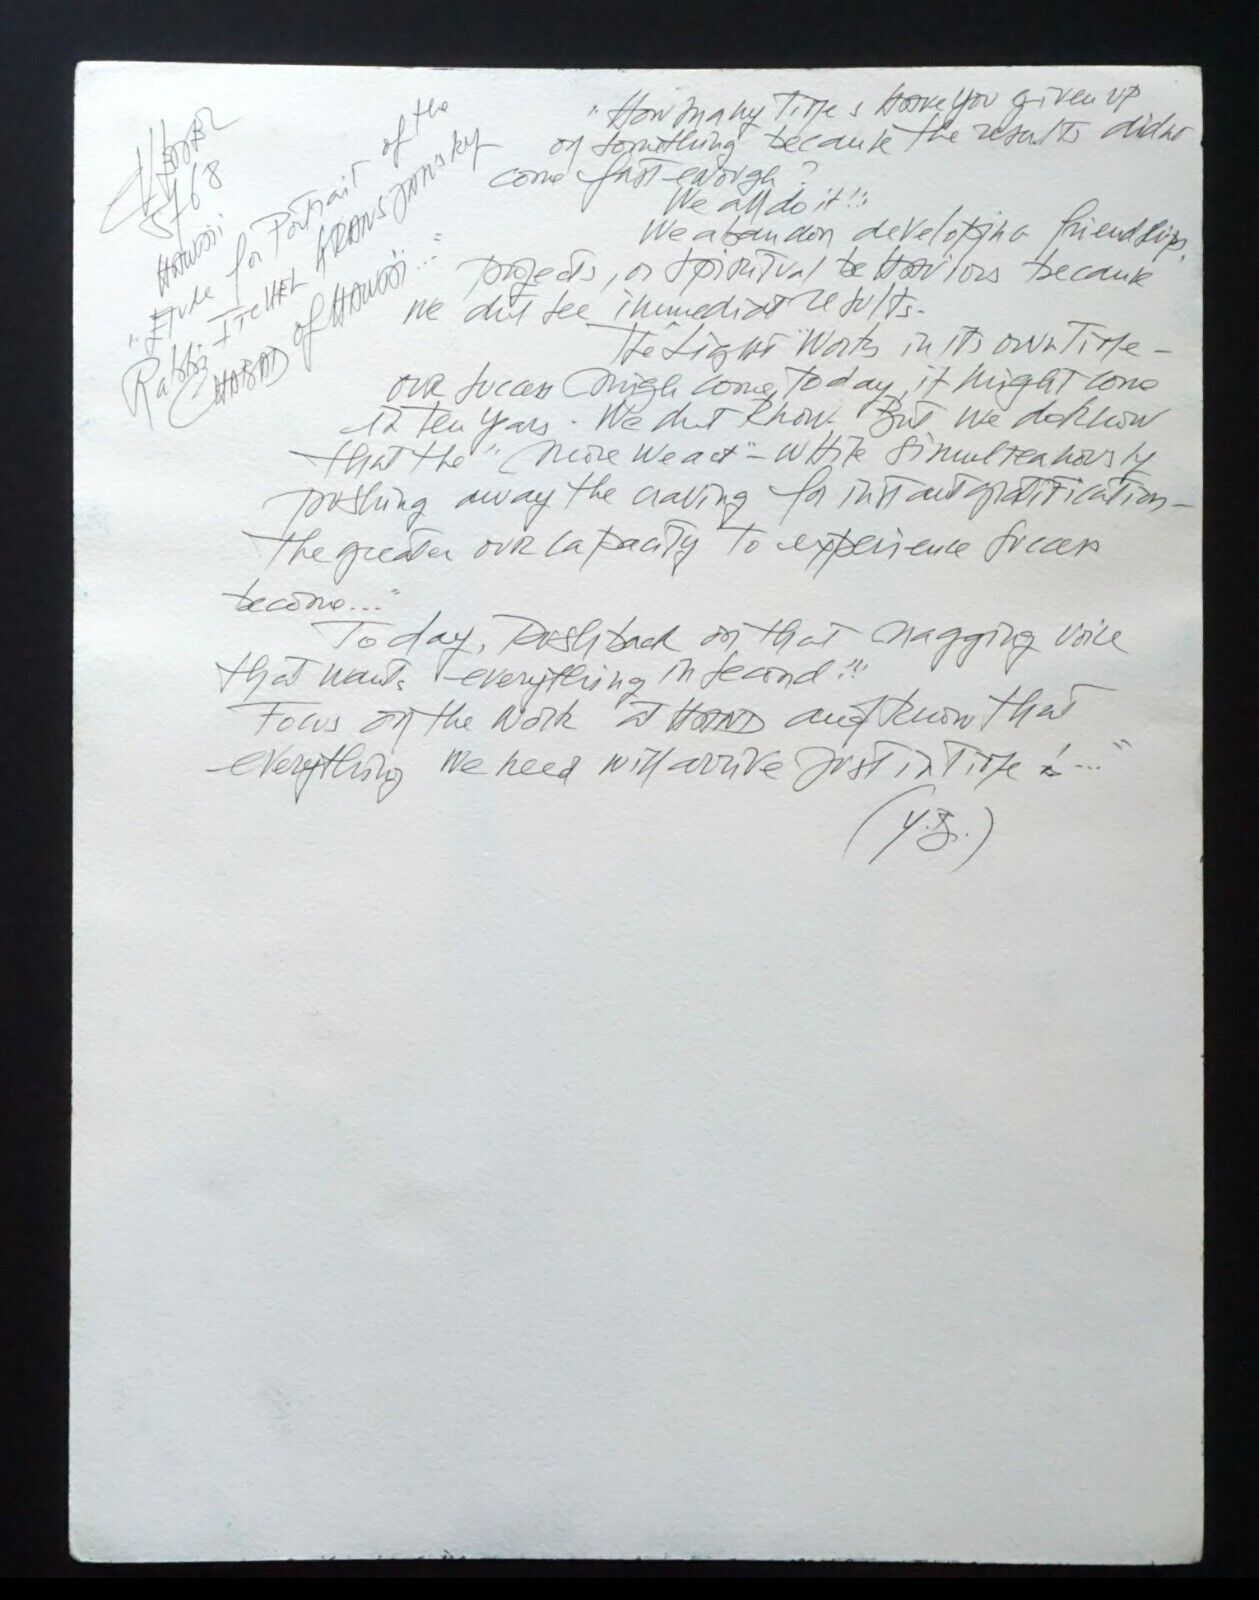 5768
HAWAII
"ETUDE for Portrait of the
Rabbi ITCHEL KRANSJANSKY
CHABAD of HAWAII..."
"How many Times HAVE you given up
on something because the results didn't
come fast enough?
We all do it!!
We abandon developing friendships,
projects, or spiritual behaviors because
we dnt see immediat results.
The Light Works in its own Time –
our success might come today, it might come
in Ten years. We dnt know. But we do know
that the "more we act" – while simulteanously
pushing away the craving for instant gratification –
the greater our capacity To experience success
become..."
Today, Push back on that nagging voice
that wants everything in second!!!
Focus on the work at HAND and know that
everything we need will arrive just in Time !..."
(Y.B.)